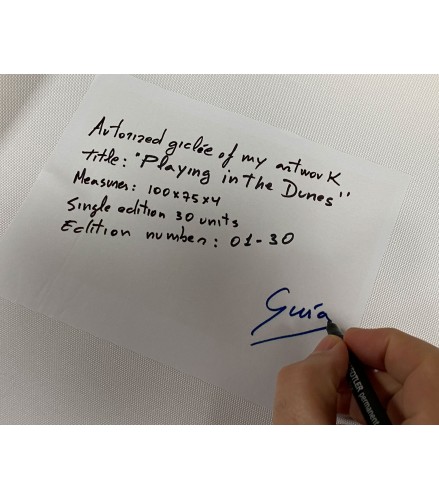 Autorized giclée of my artwork
title: "Playing in the Dunes"
Measures: 100x75x4
Single edition 30 units
Edition number: 01-30
Guía
STAEDTLER permanent